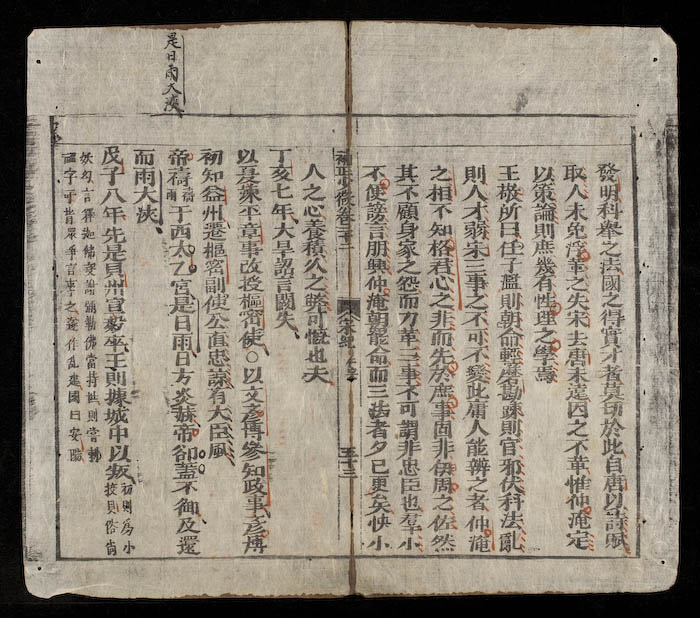 是日雨大浹
發明科舉之法國之得實才者莫切於此自唐以詩賦
取人未免浮華之失宋去唐未遠因之不革惟仲淹定
以策論則庶幾有性理之學焉
王敬所曰任子濫則朝命輕磨勘疎則官邪伏科法亂
則人才弱宋三事之不可不變此庸人能辨之者仲淹
之相不知格君心之非而先於庶事固非伊周之佐然
其不顧身家之怨而力革三事不可謂非忠臣也羣小
不便謗言朋興仲淹朝罷命而三法者夕已更矣怏小
補正少微卷三十二 宋紀 五十三
人之心養積久之弊可慨也夫
丁亥七年大旱詔言闕失
以夏竦平章事改授樞密使○以文彥博參知政事彥博
初知益州遷樞密副使公直忠諒有大臣風
帝禱雨于西太乙宮是日雨日方炎赫帝卻蓋不御及還
而雨大浹
戊子八年先是貝州宣毅卒王則據城中以叛
初則為小
校貝俗尚
妖幻言釋迦佛衰謝彌勒佛當持世則嘗刺
福字于背眾爭言事之遂作亂建國曰安陽